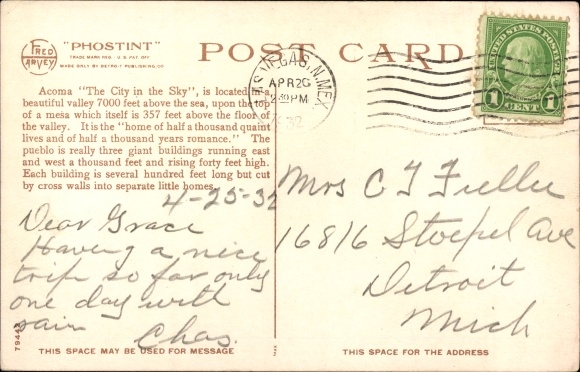 FRED HARVEY
"PHOSTINT"
TRADE MARK REG. U.S. PAT. OFF.
MADE ONLY BY DETROIT PUBLISHING CO.
POST CARD
VEGAS, N.MEX.
APR 26
2:30 PM
32
UNITED STATES POSTAGE
1 CENT 1
Acoma "The City in the Sky", is located in a
beautiful valley 7000 feet above the sea, upon the top
of a mesa which itself is 357 feet above the floor of
the valley. It is the "home of half a thousand quaint
lives and of half a thousand years romance." The
pueblo is really three giant buildings running east
and west a thousand feet and rising forty feet high.
Each building is several hundred feet long but cut
by cross walls into separate little homes.
4-25-32
Dear Grace
Having a nice
trip so far only
one day with
rain
Chas.
Mrs C F Fuller
16816 Stoepel Ave
Detroit
Mich
THIS SPACE MAY BE USED FOR MESSAGE
THIS SPACE FOR THE ADDRESS